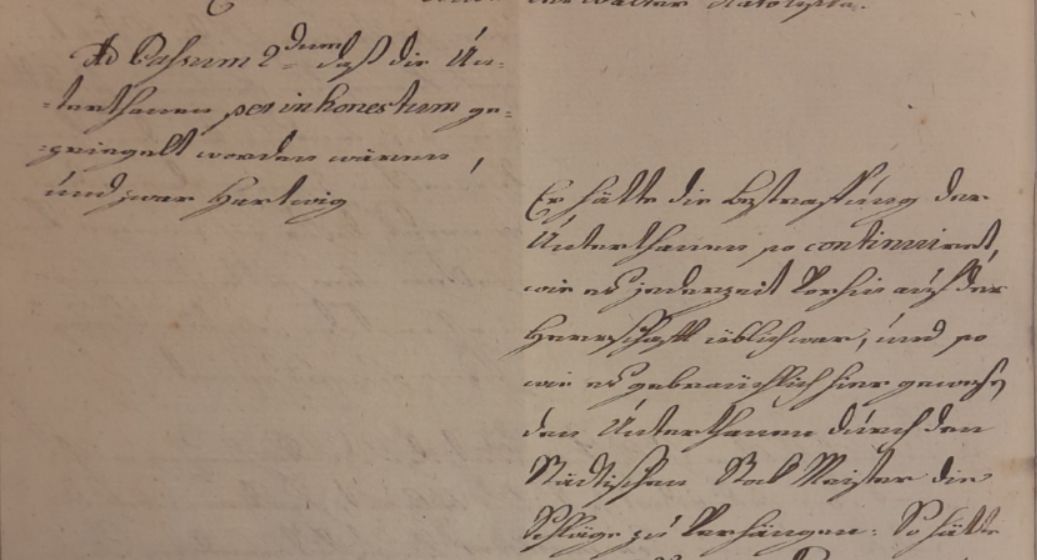 der Walter
Ad Passum 2dum daß die Un-
terthanen per inhonestum ge-
priegelt worden wären,
und zwar Hertwig
Er hätte die Bestraffung der
Unterthanen so continuiret,
wie es jederzeit Vorhin auf der
Herrschafft üblich war, und so
wie es gebräuchlich hier gewesen
den Unterthanen durch den
Städtischen Stab Meister die
Schläge zu Verhängen. So hätte